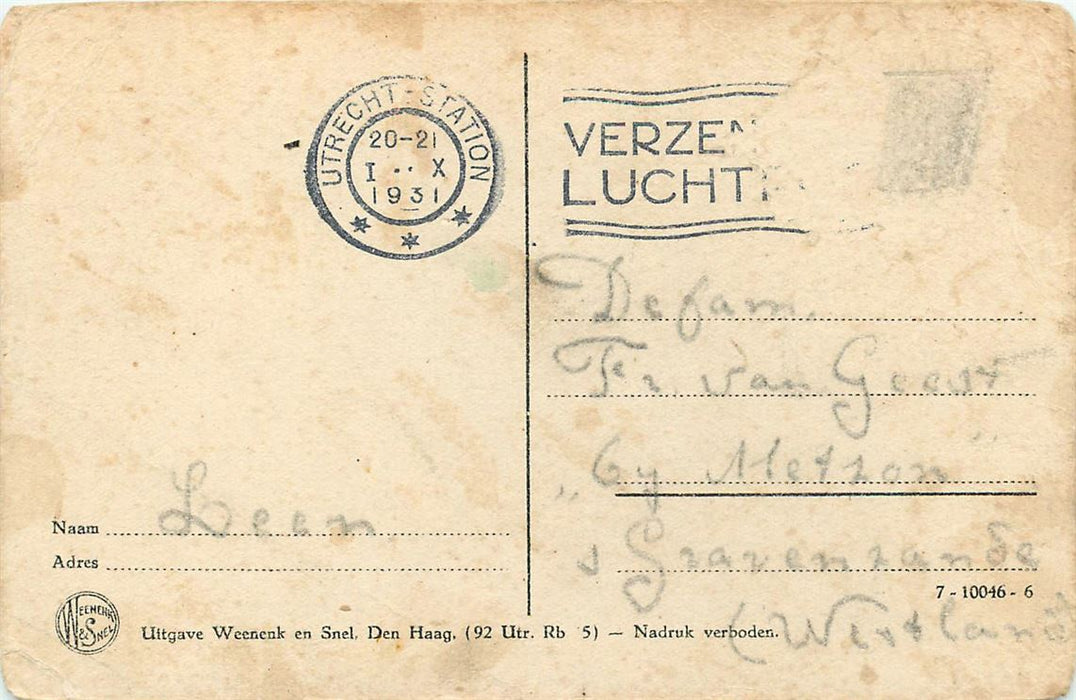 UTRECHT-STATION
20-21
I X
1931
VERZEN
LUCHT
De fam.
Fr. van Geest
"by Metzon"
s Gravenzande
(Westland)
Naam Leen
Adres
WEENENK & SNEL
7 - 10046 - 6
Uitgave Weenenk en Snel, Den Haag. (92 Utr. Rb 5) — Nadruk verboden.